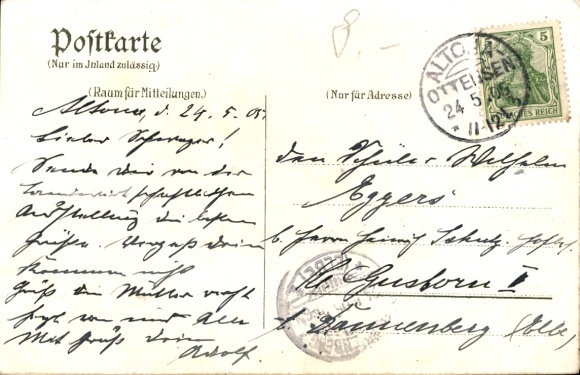 Postkarte
(Nur im Inland zulässig)
(Raum für Mitteilungen.)
(Nur für Adresse)
ALTONA
OTTENSEN
24 5 05
11-12
5
DEUTSCHES REICH
8.-
Altona, d. 24. 5. 05.
Lieber Schwager!
Sende dir von der
landwirtschaftlichen
Ausstellung die besten
Grüße. Vergess dein
Kommen nicht
Grüß die Mutter recht
von und Alle
Mit Gruß dein
Adolf.
den Schüler Wilhelm
Eggers
b. Herrn Heinrich Schulz
Kl. Gusborn
b. Dannenberg (Elbe)